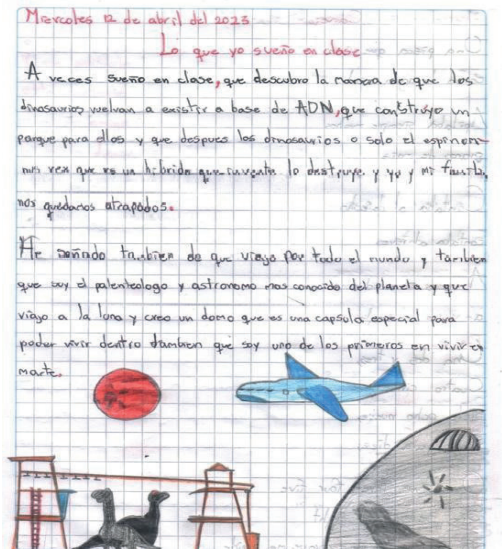 Miercoles 12 de abril del 2023
Lo que yo sueño en clase
A veces sueño en clase, que descubro la manera de que los
dinosaurios vuelvan a existir a base de ADN, que construyo un
parque para ellos y que despues los dinosaurios o solo el espinon-
mus rex que es un hibrido que invente lo destruye y yo y mi familia,
nos quedamos atrapados.
He soñado tambien de que viajo por todo el mundo y tambien
que soy el palenteologo y astronomo mas conocido del planeta y que
viajo a la luna y creo un domo que es una capsula especial para
poder vivir dentro tambien que soy uno de los primeros en vivir en
marte.